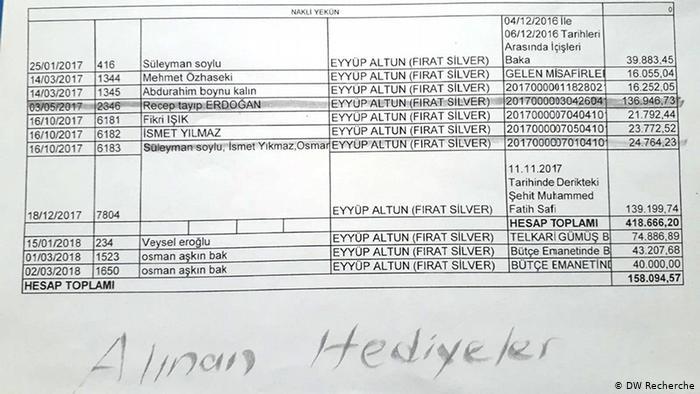 NAKLİ YEKÜN 0
04/12/2016 İle
06/12/2016 Tarihleri
Arasında İçişleri
25/01/2017 416 Süleyman soylu EYYÜP ALTUN (FIRAT SILVER) Baka 39.883,45
14/03/2017 1344 Mehmet Özhaseki EYYÜP ALTUN (FIRAT SILVER) GELEN MİSAFİRLEI 16.055,04
14/03/2017 1345 Abdurahim boynu kalın EYYÜP ALTUN (FIRAT SILVER) 2017000001182802 16.252,05
03/05/2017 2346 Recep tayıp ERDOĞAN EYYÜP ALTUN (FIRAT SILVER) 2017000003042604 136.946,73
16/10/2017 6181 Fikri IŞIK EYYÜP ALTUN (FIRAT SILVER) 2017000007040410 21.792,44
16/10/2017 6182 İSMET YILMAZ EYYÜP ALTUN (FIRAT SILVER) 2017000007050410 23.772,52
16/10/2017 6183 Süleyman soylu, İsmet Yıkmaz,Osmar EYYÜP ALTUN (FIRAT SILVER) 2017000007010410 24.764,23
11.11.2017
Tarihinde Derikteki
Şehit Muhammed
18/12/2017 7804 EYYÜP ALTUN (FIRAT SILVER) Fatih Safi 139.199,74
HESAP TOPLAMI 418.666,20
15/01/2018 234 Veysel eroğlu EYYÜP ALTUN (FIRAT SILVER) TELKARİ GÜMÜŞ B 74.886,89
01/03/2018 1523 osman aşkın bak EYYÜP ALTUN (FIRAT SILVER) Bütçe Emanetinde B 43.207,68
02/03/2018 1650 osman aşkın bak EYYÜP ALTUN (FIRAT SILVER) BÜTÇE EMANETİND 40.000,00
HESAP TOPLAMI 158.094,57
Alınan Hediyeler
© DW Recherche